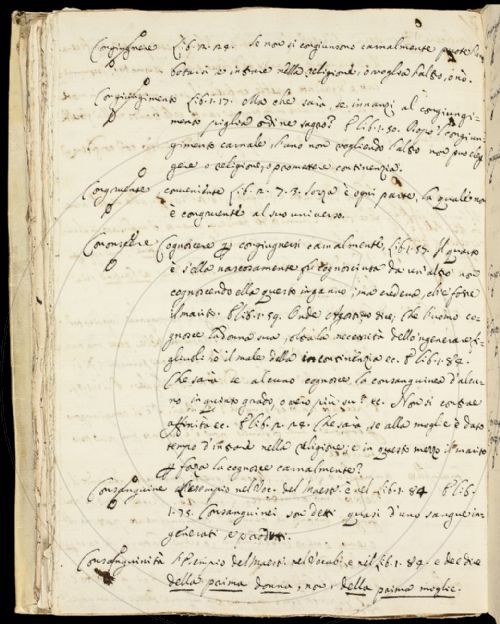 Congiugnere Lib. 2. 29. Se non si congiunsono carnalmente puote
botarsi e intrare nella religione, o voglia l'altro, o nò.
Congiugnimento Lib. 1. 17. Ma che sarà, se innanzi al congiugni-
mento piglia ordine sagro? E lib. 1. 50. Dopo 'l congiun-
gimento carnale, l'uno non vogliendo l'altro non può eleg
gere o religione, o promettere continenzia.
Congruente conveniente Lib. 2. 7. 3. Sozza è ogni parte, la quale non
è congruente al suo universo.
Conoscere Cognoscere per congiugnersi carnalmente. Lib. 1. 57. Il quarto
è s'ella nascosamente fu cognosciuta da un'altro non
cognoscendo ella questo inganno; ma credeva, che fosse
il marito. E lib. 1. 59. Onde che l'uomo co-
gnosce la donna sua, oltra la necessità dello 'ngenerare fi-
gliuoli è il male della incontinenzia ec. E lib. 1. 84.
Che sarà se alcuno cognosce la consanguinea d'alcu-
no in quinto grado, o vero più su? ec. Non si contrae
affinità ec. E lib. 2. 29. Che sarà, se alla moglie è dato
tempo d'intrare nella religione: e in questo mezzo il marito
per forza la cognosce carnalmente?
Consanguineo L'esempio nel Voc. del Maestr. è nel Lib. 1. 84 E lib.
1. 75. Consanguinei son detti quasi d'uno sangue in-
generati, e prodotti.
Consanguinità L'esempio del Maestr. nel Vocab. è nel lib. 1. 84. e dee dire
della prima donna, non, della prima moglie.